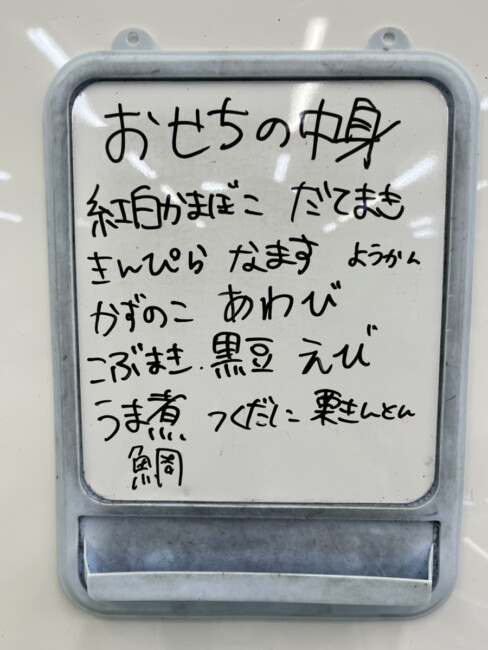 おせちの中身
紅白かまぼこ だてまき
きんぴら なます ようかん
かずのこ あわび
こぶまき 黒豆 えび
うま煮 つくだに 栗きんとん
鯛